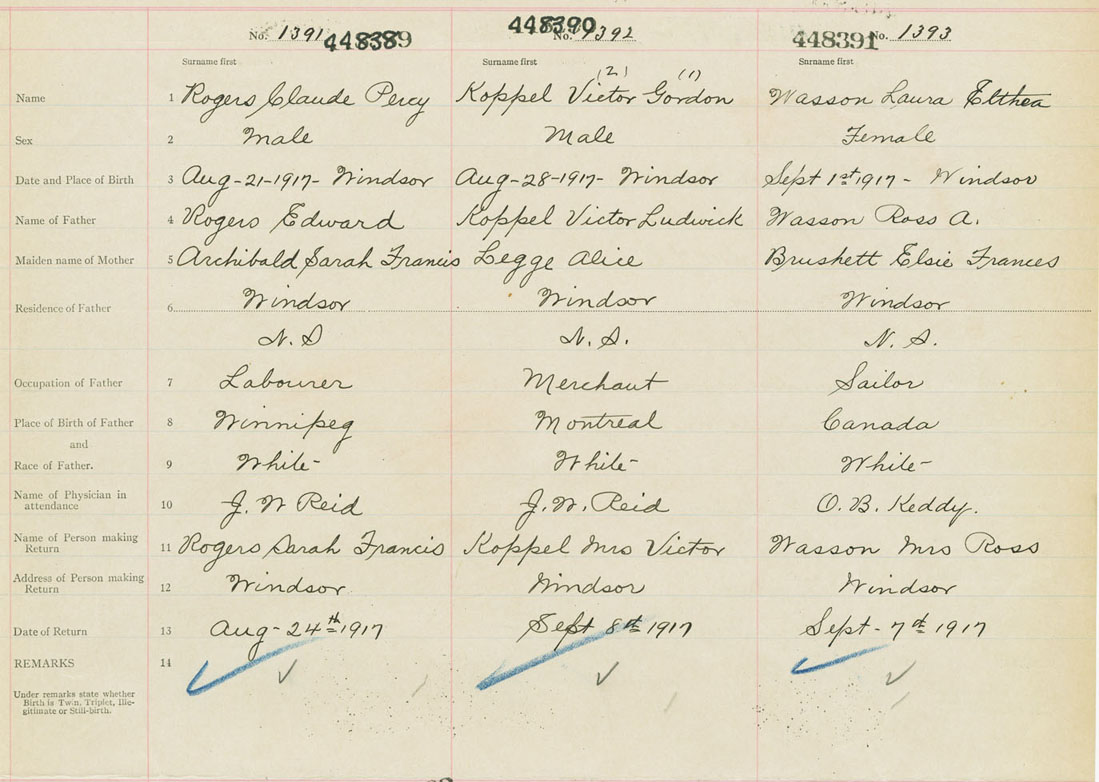 No. 1391 448389 448390 No. 1392 448391 No. 1393
Surname first Surname first Surname first
(2) (1)
Name 1 Rogers Claude Percy Koppel Victor Gordon Wasson Laura Elthea
Sex 2 Male Male Female
Date and Place of Birth 3 Aug-21-1917- Windsor Aug-28-1917- Windsor Sept 1st 1917- Windsor
Name of Father 4 Rogers Edward Koppel Victor Ludwick Wasson Ross A.
Maiden name of Mother 5 Archibald Sarah Francis Legge Alice Brushett Elsie Frances
Residence of Father 6 Windsor Windsor Windsor
N.S N.S. N.S.
Occupation of Father 7 Labourer Merchant Sailor
Place of Birth of Father 8 Winnipeg Montreal Canada
and
Race of Father. 9 White- White- White-
Name of Physician in
attendance 10 J. W Reid J. W. Reid O. B. Keddy.
Name of Person making
Return 11 Rogers Sarah Francis Koppel Mrs Victor Wasson Mrs Ross
Address of Person making
Return 12 Windsor Windsor Windsor
Date of Return 13 Aug- 24th 1917 Sept 8th 1917 Sept- 7th 1917
REMARKS 14
Under remarks state whether
Birth is Twin, Triplet, Ille-
gitimate or Still-birth.